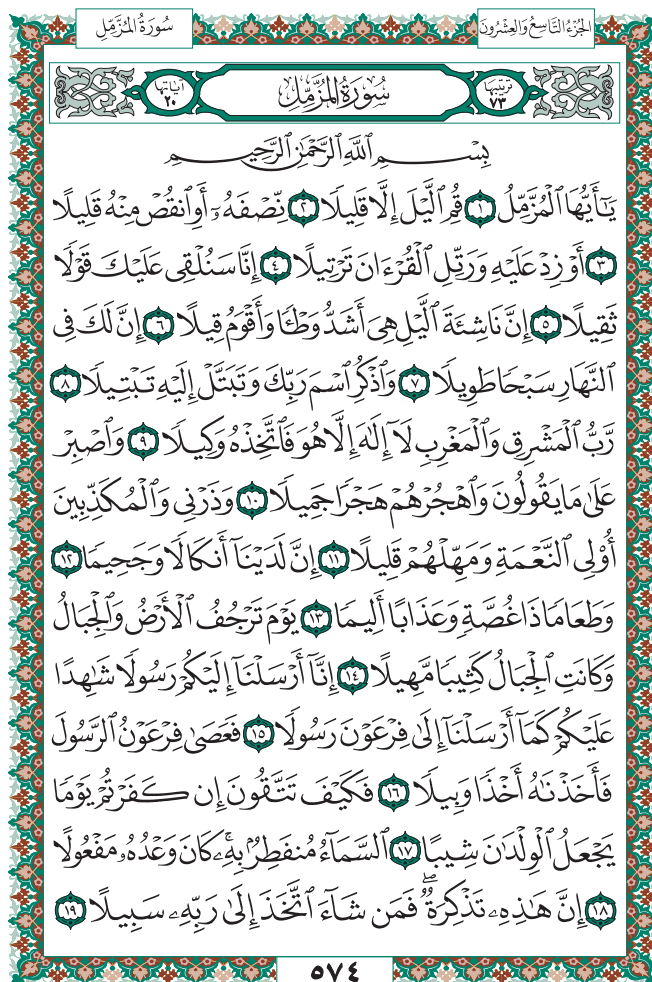 الجُزْءُ التَّاسِعُ وَالعِشْرُونَ
سُورَةُ المُزَّمِّل
ترتيبها ٧٣
سُورَةُ المُزَّمِّل
اياتها ٢٠
بِسْمِ ٱللَّهِ ٱلرَّحْمَٰنِ ٱلرَّحِيمِ
يَـٰٓأَيُّهَا ٱلْمُزَّمِّلُ ١ قُمِ ٱلَّيْلَ إِلَّا قَلِيلًا ٢ نِّصْفَهُۥٓ أَوِ ٱنقُصْ مِنْهُ قَلِيلًا
٣ أَوْ زِدْ عَلَيْهِ وَرَتِّلِ ٱلْقُرْءَانَ تَرْتِيلًا ٤ إِنَّا سَنُلْقِى عَلَيْكَ قَوْلًا
ثَقِيلًا ٥ إِنَّ نَاشِئَةَ ٱلَّيْلِ هِىَ أَشَدُّ وَطْـًٔا وَأَقْوَمُ قِيلًا ٦ إِنَّ لَكَ فِى
ٱلنَّهَارِ سَبْحًا طَوِيلًا ٧ وَٱذْكُرِ ٱسْمَ رَبِّكَ وَتَبَتَّلْ إِلَيْهِ تَبْتِيلًا ٨
رَّبُّ ٱلْمَشْرِقِ وَٱلْمَغْرِبِ لَآ إِلَـٰهَ إِلَّا هُوَ فَٱتَّخِذْهُ وَكِيلًا ٩ وَٱصْبِرْ
عَلَىٰ مَا يَقُولُونَ وَٱهْجُرْهُمْ هَجْرًا جَمِيلًا ١٠ وَذَرْنِى وَٱلْمُكَذِّبِينَ
أُو۟لِى ٱلنَّعْمَةِ وَمَهِّلْهُمْ قَلِيلًا ١١ إِنَّ لَدَيْنَآ أَنكَالًا وَجَحِيمًا ١٢
وَطَعَامًا ذَا غُصَّةٍ وَعَذَابًا أَلِيمًا ١٣ يَوْمَ تَرْجُفُ ٱلْأَرْضُ وَٱلْجِبَالُ
وَكَانَتِ ٱلْجِبَالُ كَثِيبًا مَّهِيلًا ١٤ إِنَّآ أَرْسَلْنَآ إِلَيْكُمْ رَسُولًا شَـٰهِدًا
عَلَيْكُمْ كَمَآ أَرْسَلْنَآ إِلَىٰ فِرْعَوْنَ رَسُولًا ١٥ فَعَصَىٰ فِرْعَوْنُ ٱلرَّسُولَ
فَأَخَذْنَـٰهُ أَخْذًا وَبِيلًا ١٦ فَكَيْفَ تَتَّقُونَ إِن كَفَرْتُمْ يَوْمًا
يَجْعَلُ ٱلْوِلْدَٰنَ شِيبًا ١٧ ٱلسَّمَآءُ مُنفَطِرٌۢ بِهِۦ ۚ كَانَ وَعْدُهُۥ مَفْعُولًا
١٨ إِنَّ هَـٰذِهِۦ تَذْكِرَةٌ ۖ فَمَن شَآءَ ٱتَّخَذَ إِلَىٰ رَبِّهِۦ سَبِيلًا ١٩
٥٧٤